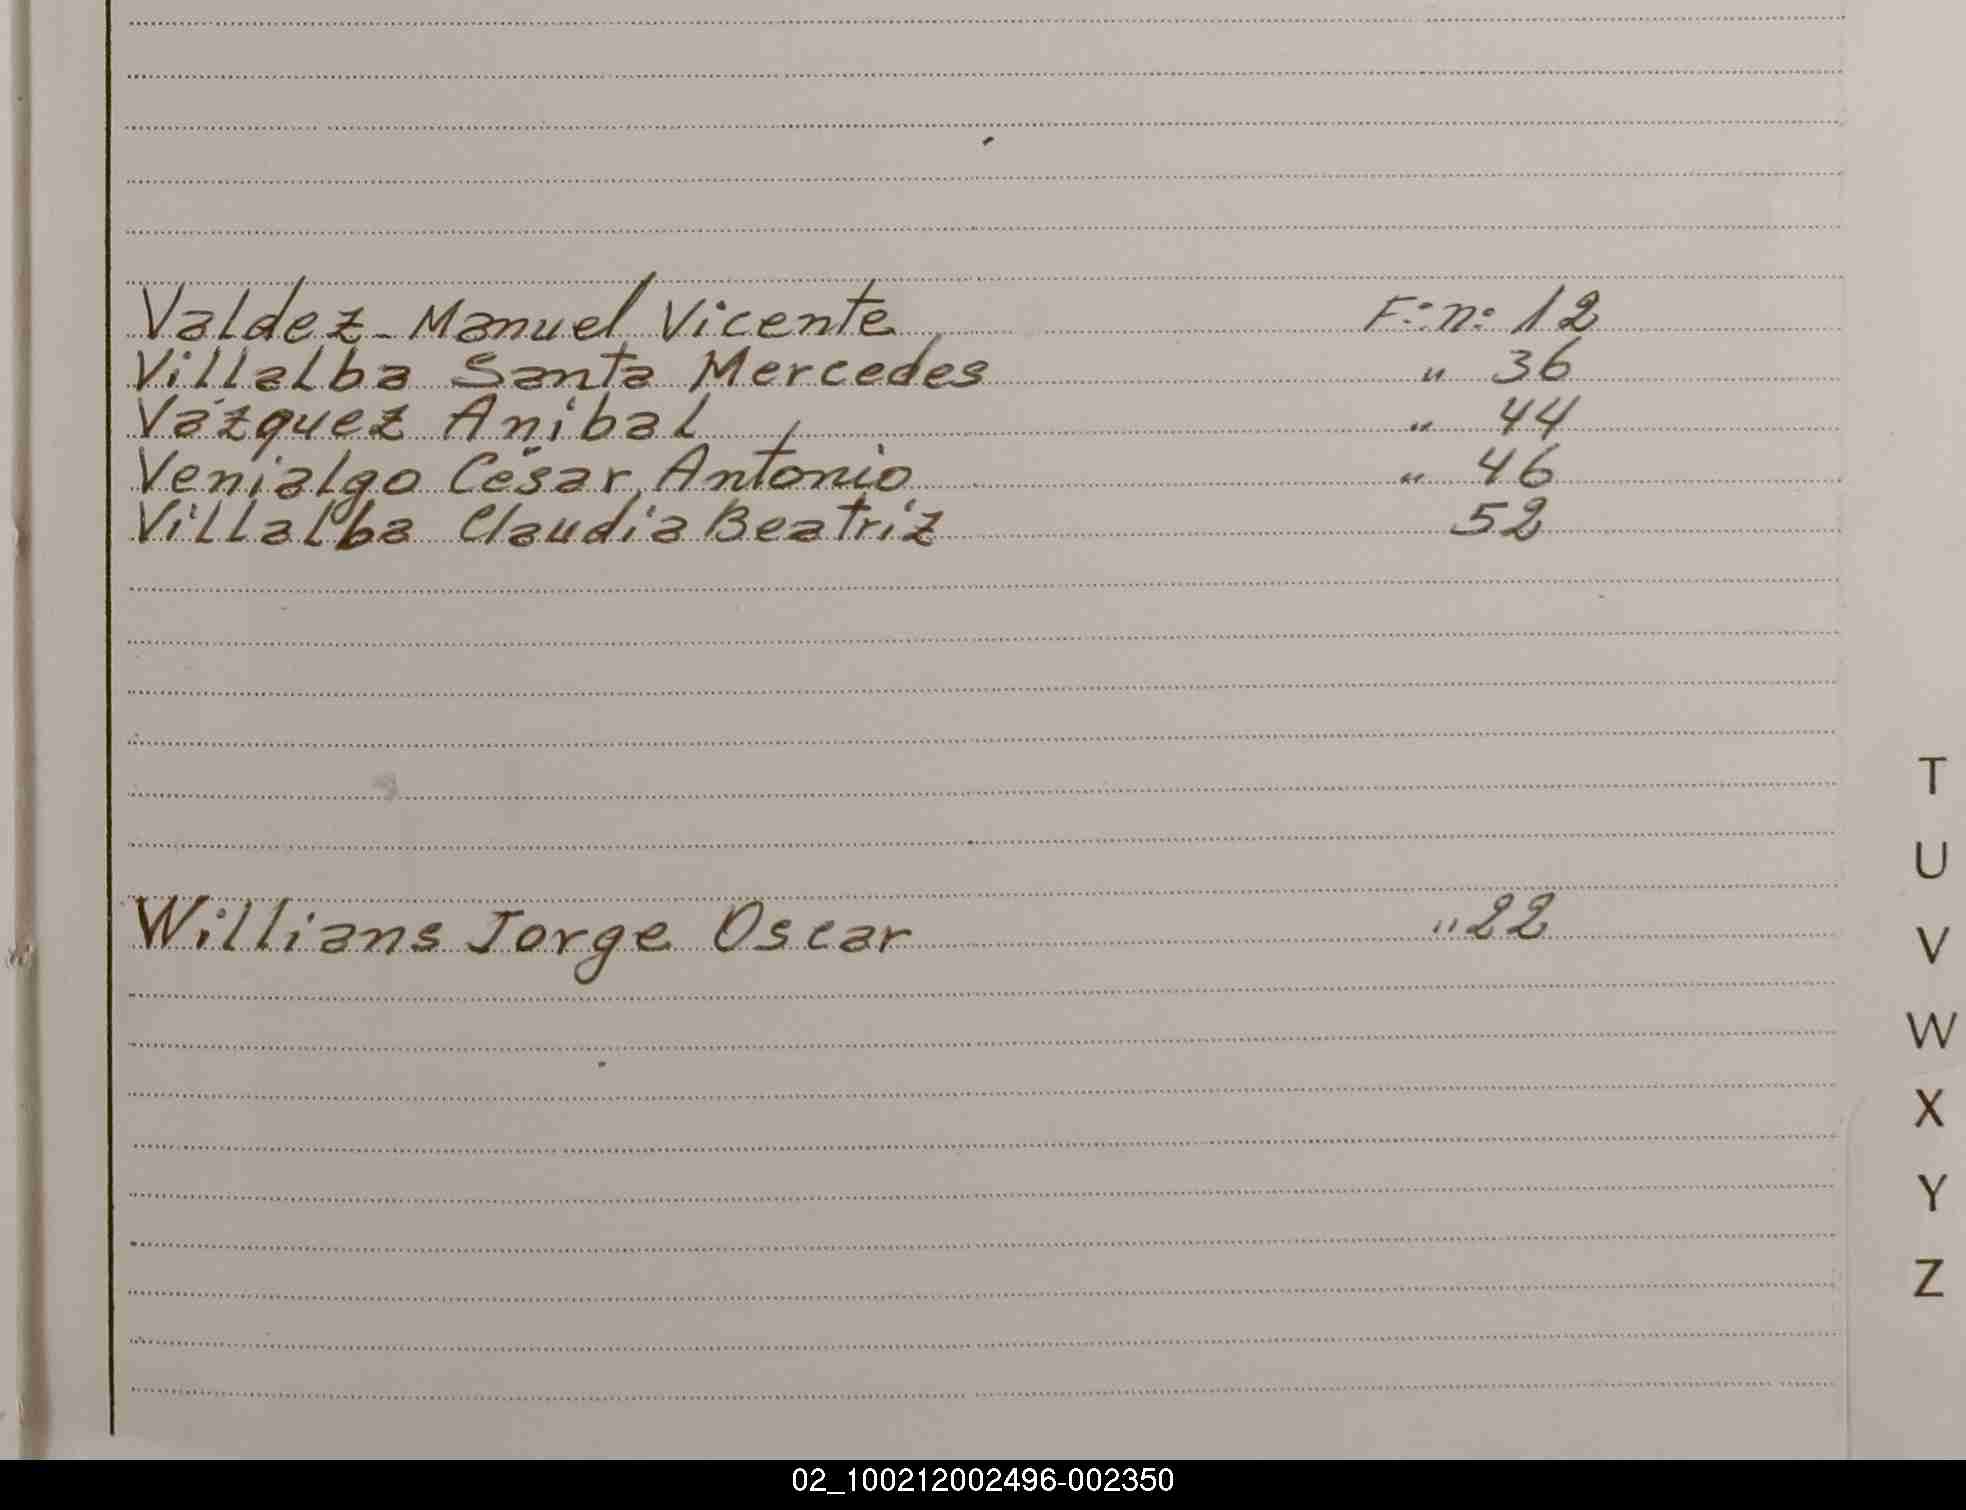 Valdez - Manuel Vicente F:n: 12
Villalba Santa Mercedes " 36
Vázquez Anibal " 44
Venialgo César Antonio " 46
Villalba Claudia Beatriz 52
Willians Jorge Oscar " 22
T
U
V
W
X
Y
Z
02_100212002496-002350